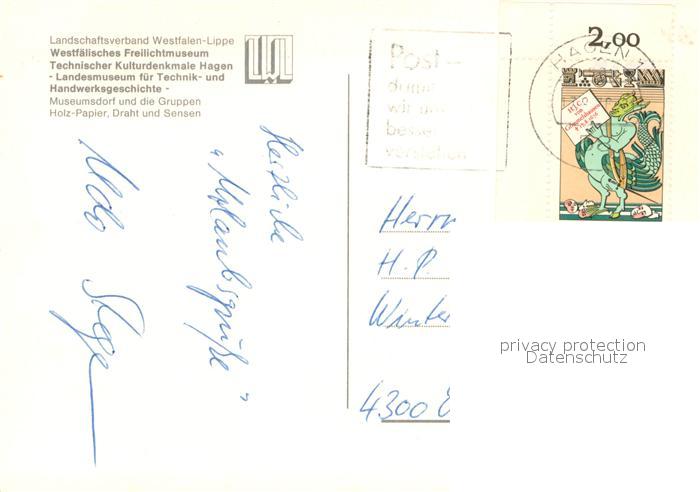 Landschaftsverband Westfalen-Lippe
Westfälisches Freilichtmuseum
Technischer Kulturdenkmale Hagen
- Landesmuseum für Technik- und
Handwerksgeschichte -
Museumsdorf und die Gruppen
Holz-Papier, Draht und Sensen
Herzliche
"Urlaubsgrüße"
Udo
Post –
damit
wir uns
besser
verstehen
HAGEN 1
2,00
Herrn
H. P.
Winter
4300
privacy protection
Datenschutz